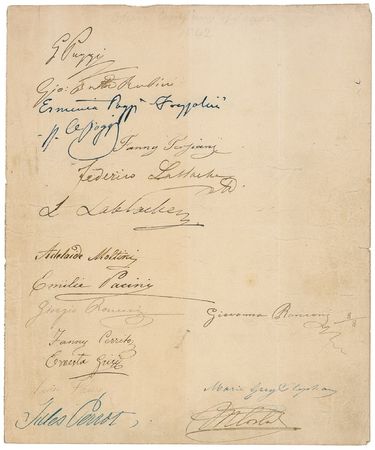 1842
G Puzzi
Gio: Batta Rubini
Erminia Poggi Frezzolini
Poggi
Fanny Persiani
Federico Lablache
L Lablache
Adelaide Moltini
Emilie Pacini
Giorgio Ronconi
Giovanna Ronconi
Fanny Cerrito
Ernesta Grisi
Maria Grey Stephan
Jules Perrot
M Costa